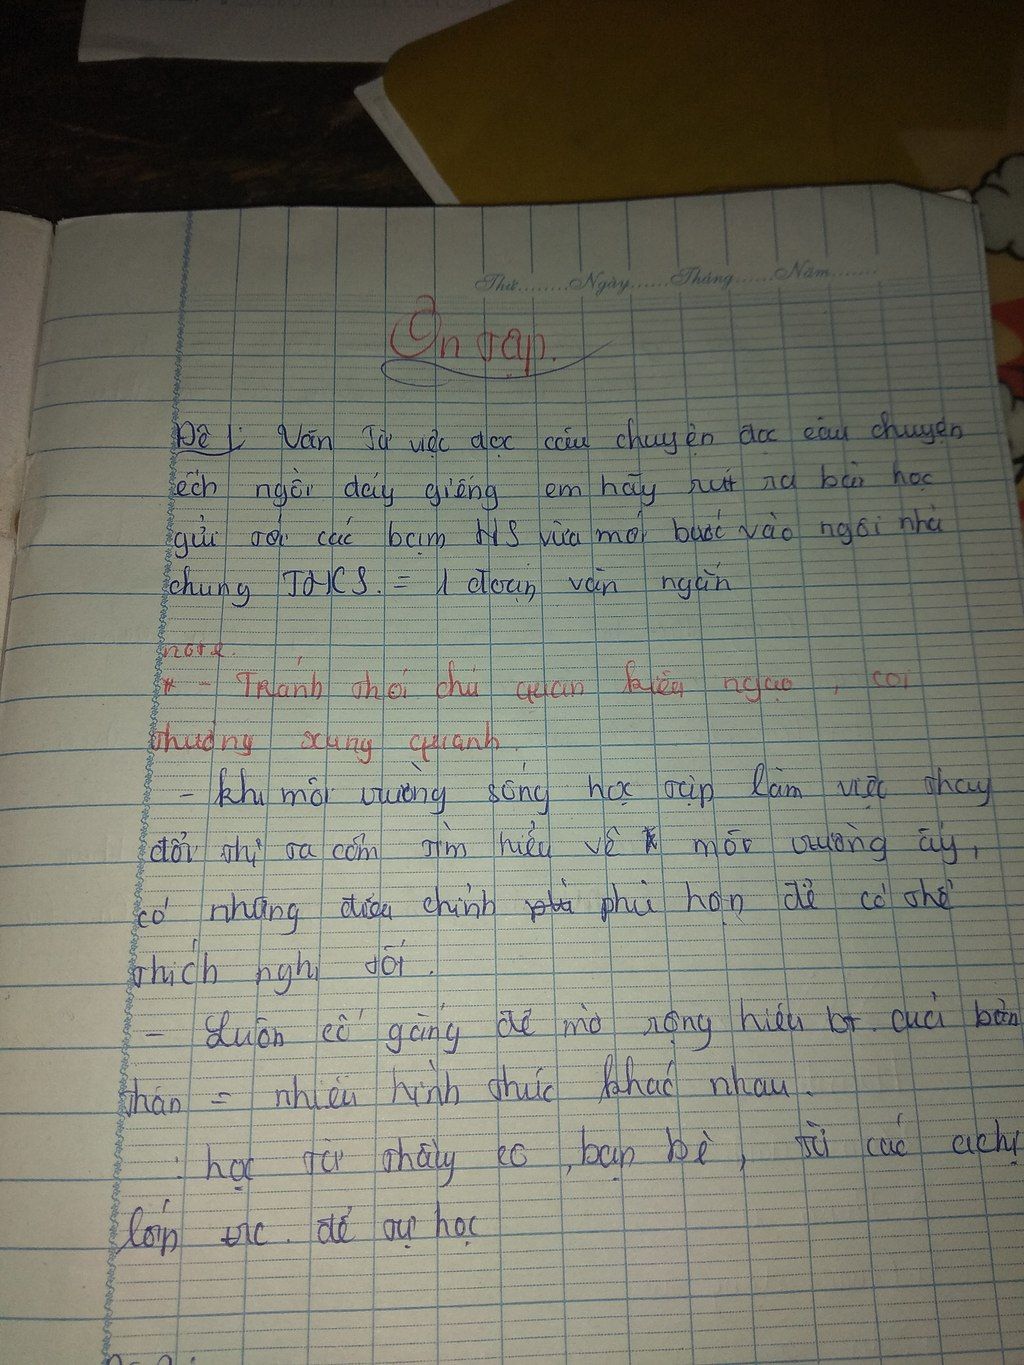 Thứ........Ngày.......Tháng.......Năm.......
Ôn tập.
Đề 1: Văn Từ việc đọc câu chuyện đọc câu chuyện
ếch ngồi đáy giếng em hãy rút ra bài học
gửi tới các bạn HS vừa mới bước vào ngôi nhà
chung THCS. = 1 đoạn văn ngắn
note.
* - Tránh thói chủ quan kiêu ngạo, coi
thường xung quanh.
- khi môi trường sống học tập làm việc thay
đổi thì ta cần tìm hiểu về môi trường ấy,
có những điều chỉnh phù hợp để có thể
thích nghi tốt.
- Luôn cố gắng để mở rộng hiểu bt của bản
thân = nhiều hình thức khác nhau.
: học từ thầy cô, bạn bè, từ các achị
lớp trc. để tự học